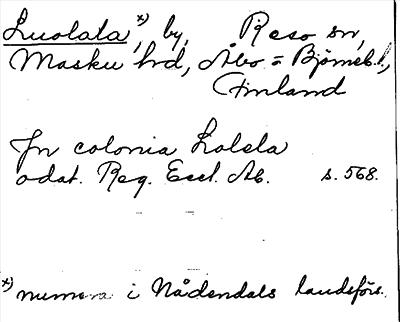 Luolala*), by, Reso sn,
Masku hd, Åbo = Björneb. l.,
Finland
In colonia Lolela
odat. Reg. Eccl. Ab. s. 568.
*) numera i Nådendals landsförs.